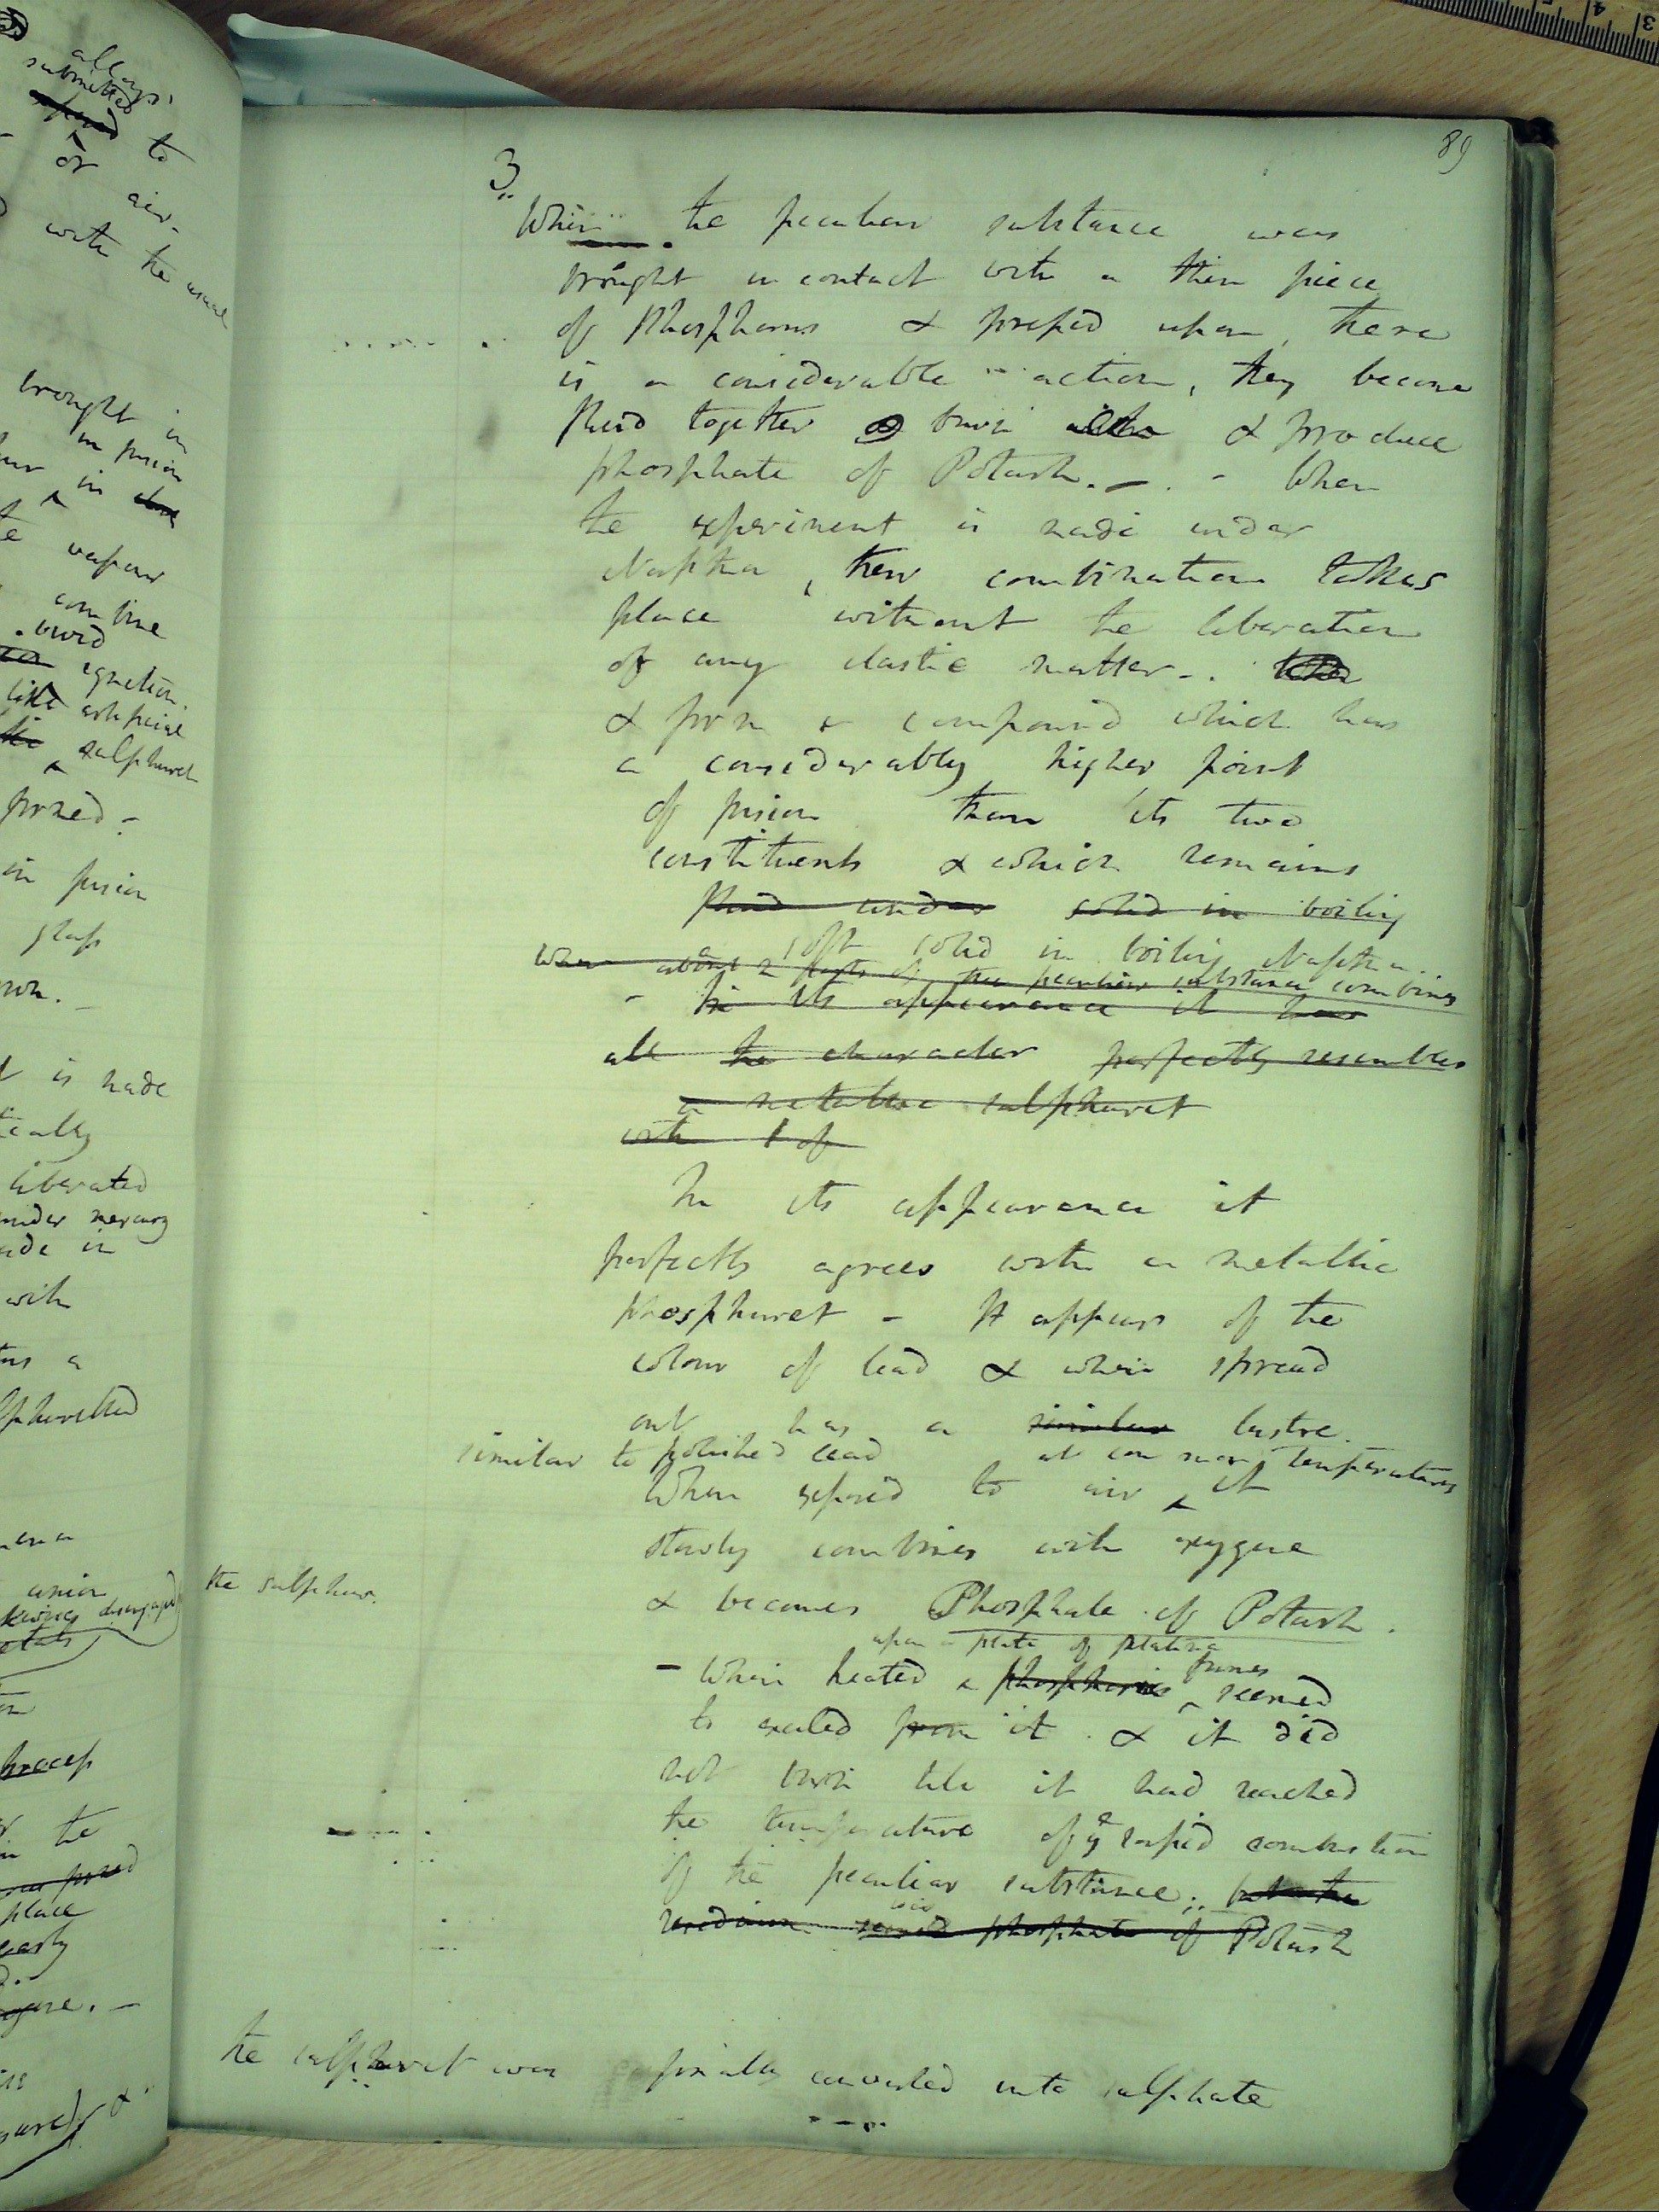 allays.
submitted
to
or
air -
with the usual
brought in
in fusion
in
vapour
combine
vivid
ignition.
like artificial
sulphuret
formed -
in fusion
glass
is made
liberated
under mercury
made in
with
a
union
being disengaged
process
the
place
89
3
When the peculiar substance was
brought in contact with a thin piece
of Phosphorus & pressed upon, there
is a considerable action, they become
fluid together burn & produce
phosphate of Potash. - . - When
the experiment is made under
Naptha, their combination takes
place without the liberation
of any elastic matter - .
& form a compound which has
a considerably higher point
of fusion than its two
constituents & which remains
fluid under solid in boiling
a soft solid in boiling Naptha.
When about 2 parts of the peculiar substance combines
- In its appearance it has
all the character perfectly resembles
a metallic sulphuret
with 1 of
In its appearance it
perfectly agrees with a metallic
phosphuret - It appears of the
colour of lead & when spread
out has a similar lustre.
similar to polished lead at common temperatures
When exposed to air ^ it
slowly combines with oxygene
the sulphur.
& becomes Phosphate of Potash.
upon a plate of platina
- When heated a phosphoric ^ fumes seemed
to exaled from it. & it did
not burn till it had reached
the temperature of ye rapid combustion
of the peculiar substance; but the
residuum seemed phosphate of Potash
the sulphuret was finally converted into sulphate